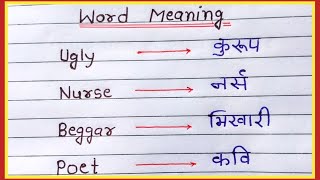 Word Meaning
Ugly → कुरूप
Nurse → नर्स
Beggar → भिखारी
Poet → कवि